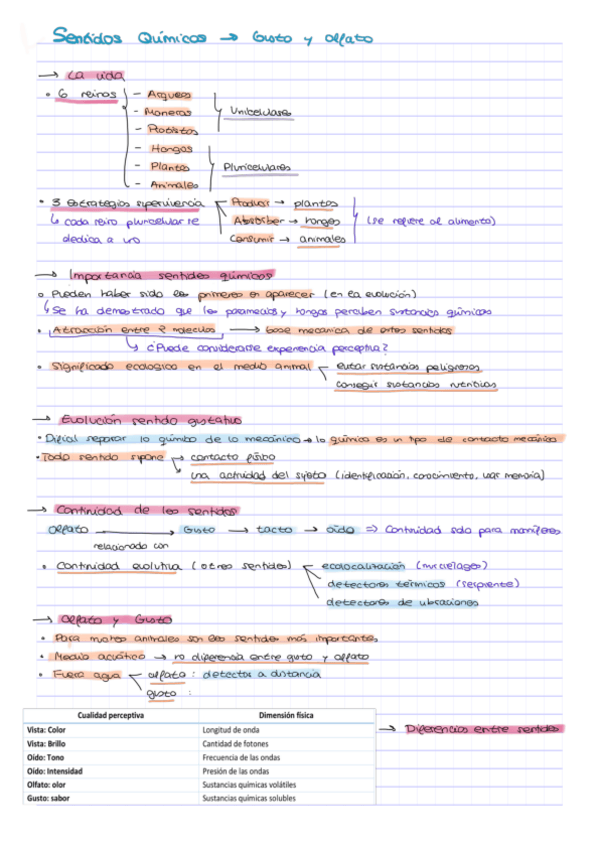 Sentidos Químicos → Gusto y olfato
→ La vida
• 6 reinos
- Arqueas
- Moneras
- Protistas
Unicelulares
- Hongos
- Plantas
- Animales
Pluricelulares
• 3 estrategias supervivencia
↳ cada reino pluricelular se
dedica a uno
Producir → plantas
Absorber → hongos
Consumir → animales
(se refiere al alimento)
→ Importancia sentidos químicos
• Pueden haber sido los primeros en aparecer (en la evolución)
↳ Se ha demostrado que los paramecios y hongos perciben sustancias químicas
• Atracción entre 2 moléculas → base mecanica de estos sentidos
↳ ¿Puede considerarse experiencia perceptiva?
• Significado ecologico en el medio animal
evitar sustancias peligrosas
conseguir sustancias nutritivas
→ Evolución sentido gustativo
• Dificil separar lo químico de lo mecánico → lo químico es un tipo de contacto mecánico
• Todo sentido supone
contacto físico
una actividad del sujeto (identificación, conocimiento, usar memoria)
→ Continuidad de los sentidos
Olfato → Gusto → tacto → oído => Continuidad solo para mamíferos
relacionado con
• Continuidad evolutiva (otros sentidos)
ecolocalización (murcielagos)
detectores térmicos (serpiente)
detectores de vibraciones
→ Olfato y Gusto
• Para muchos animales son los sentidos más importantes
• Medio acuático → no diferencia entre gusto y olfato
• Fuera agua
olfato : detectar a distancia
gusto :
Cualidad perceptiva Dimensión física
Vista: Color Longitud de onda
Vista: Brillo Cantidad de fotones
Oido: Tono Frecuencia de las ondas
Oido: Intensidad Presión de las ondas
Olfato: olor Sustancias químicas volátiles
Gusto: sabor Sustancias químicas solubles
→ Diferencias entre sentidos